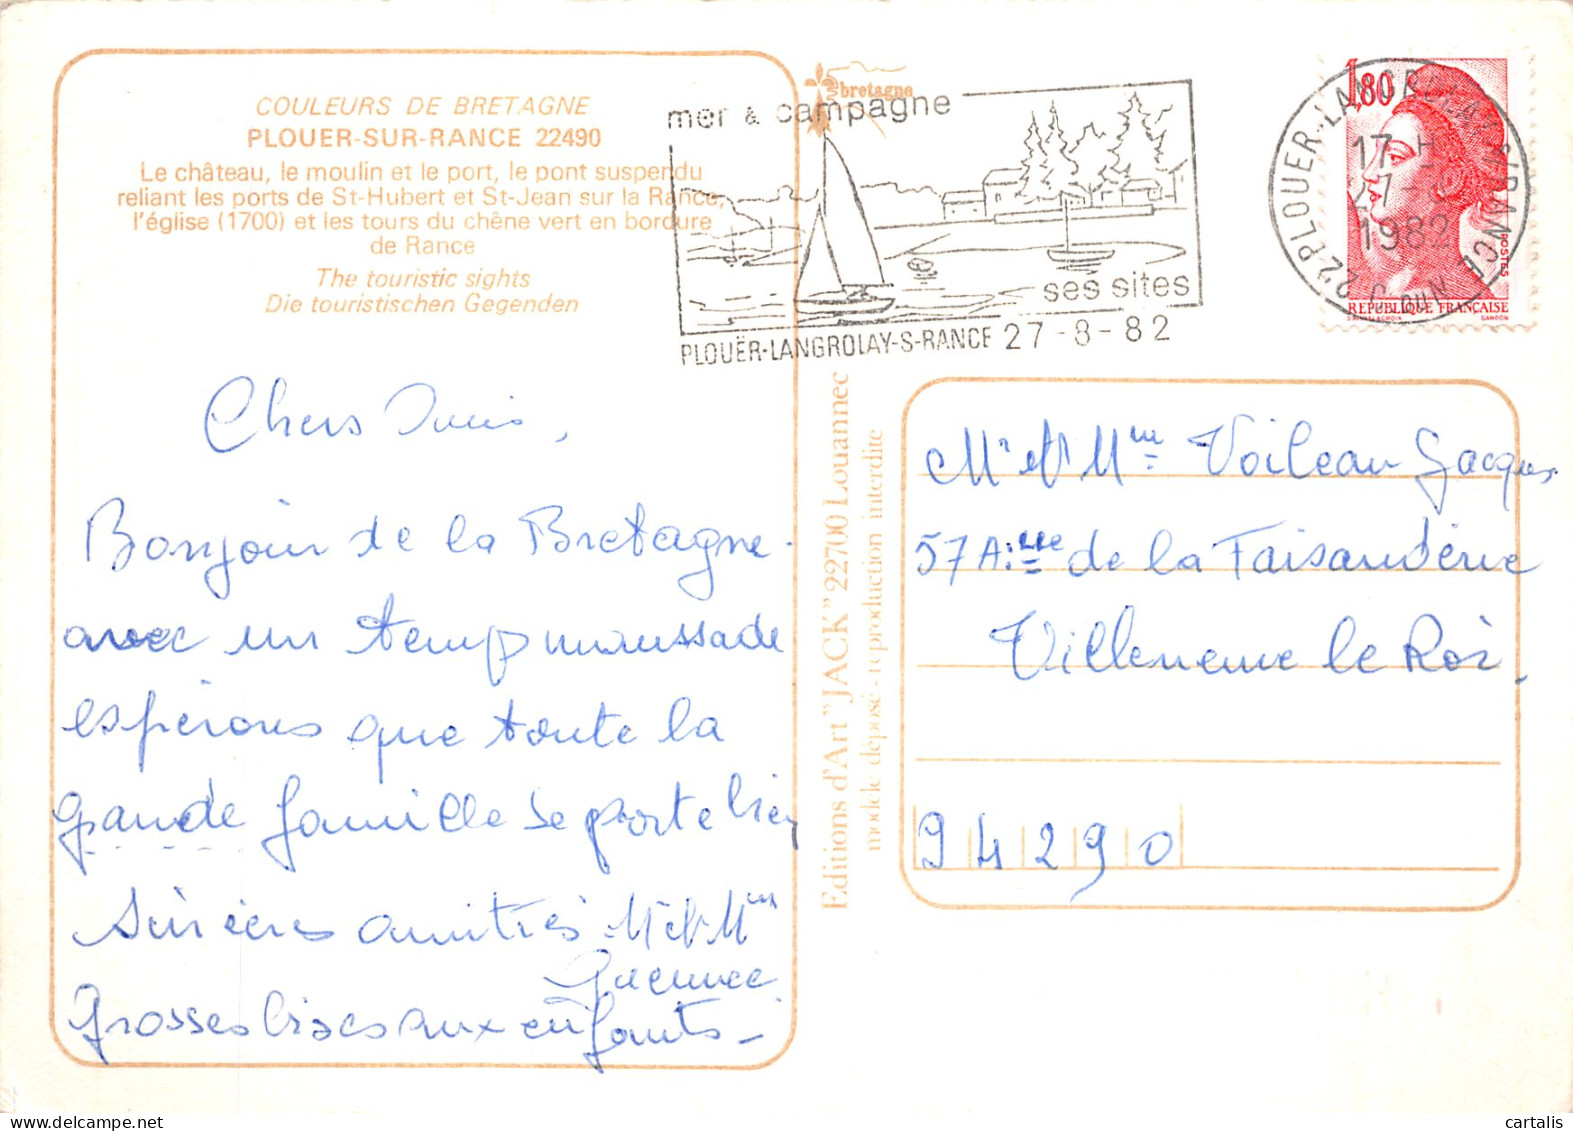 COULEURS DE BRETAGNE
PLOUER-SUR-RANCE 22490
Le château, le moulin et le port, le pont suspendu
reliant les ports de St-Hubert et St-Jean sur la Rance,
l'église (1700) et les tours du chêne vert en bordure
de Rance
The touristic sights
Die touristischen Gegenden
bretagne
mer & campagne
ses sites
PLOUËR-LANGROLAY-S-RANCE 27-8-82
22 PLOUER-LANGROLAY S/RANCE
17 H
27-8
1982
C. DU N
1,80
POSTES
REPUBLIQUE FRANÇAISE
GANDON
Chers Amis,
Bonjour de la Bretagne.
avec un temps maussade
espérons que toute la
grande famille se porte bien
Sincères amitiés Mr et Mme
Guennec
Grosses bises aux enfants -
Editions d'Art "JACK" 22700 Louannec
modèle déposé - reproduction interdite
Mr et Mme Voileau Jacques
57 A: de la Faisanderie
Villeneuve le Roi
94290
www.cartalis.com